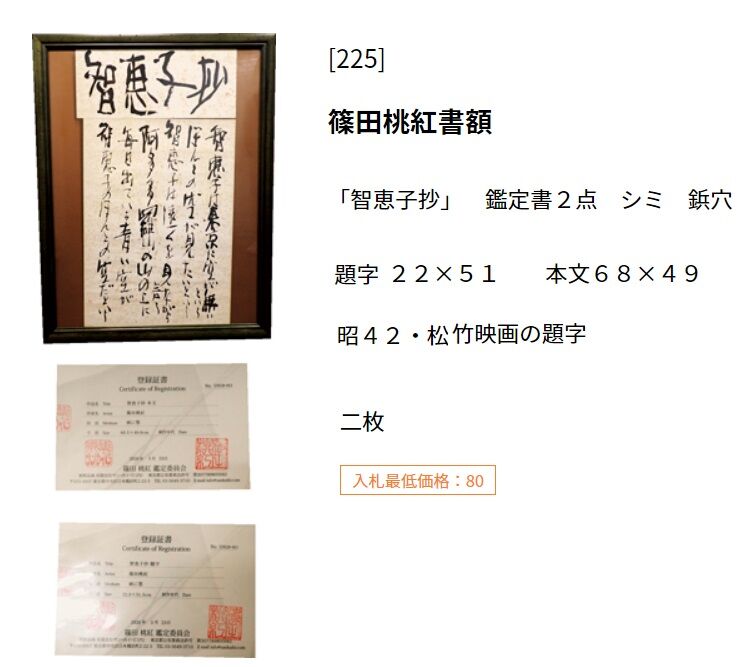 智恵子抄
智恵子は東京に空が無いといふ
ほんとの空が見たいといふ
智恵子は遠くを見ながら言ふ
阿多多羅山の山の上に
毎日出てゐる青い空が
智恵子のほんとの空だといふ
[225]
篠田桃紅書額
「智恵子抄」 鑑定書２点 シミ 鋲穴
題字 ２２×５１ 本文６８×４９
昭４２・松竹映画の題字
二枚
入札最低価格：80
登録証書
Certificate of Registration
智恵子抄 本文
篠田桃紅 鑑定委員会
登録証書
Certificate of Registration
智恵子抄 題字
篠田桃紅 鑑定委員会